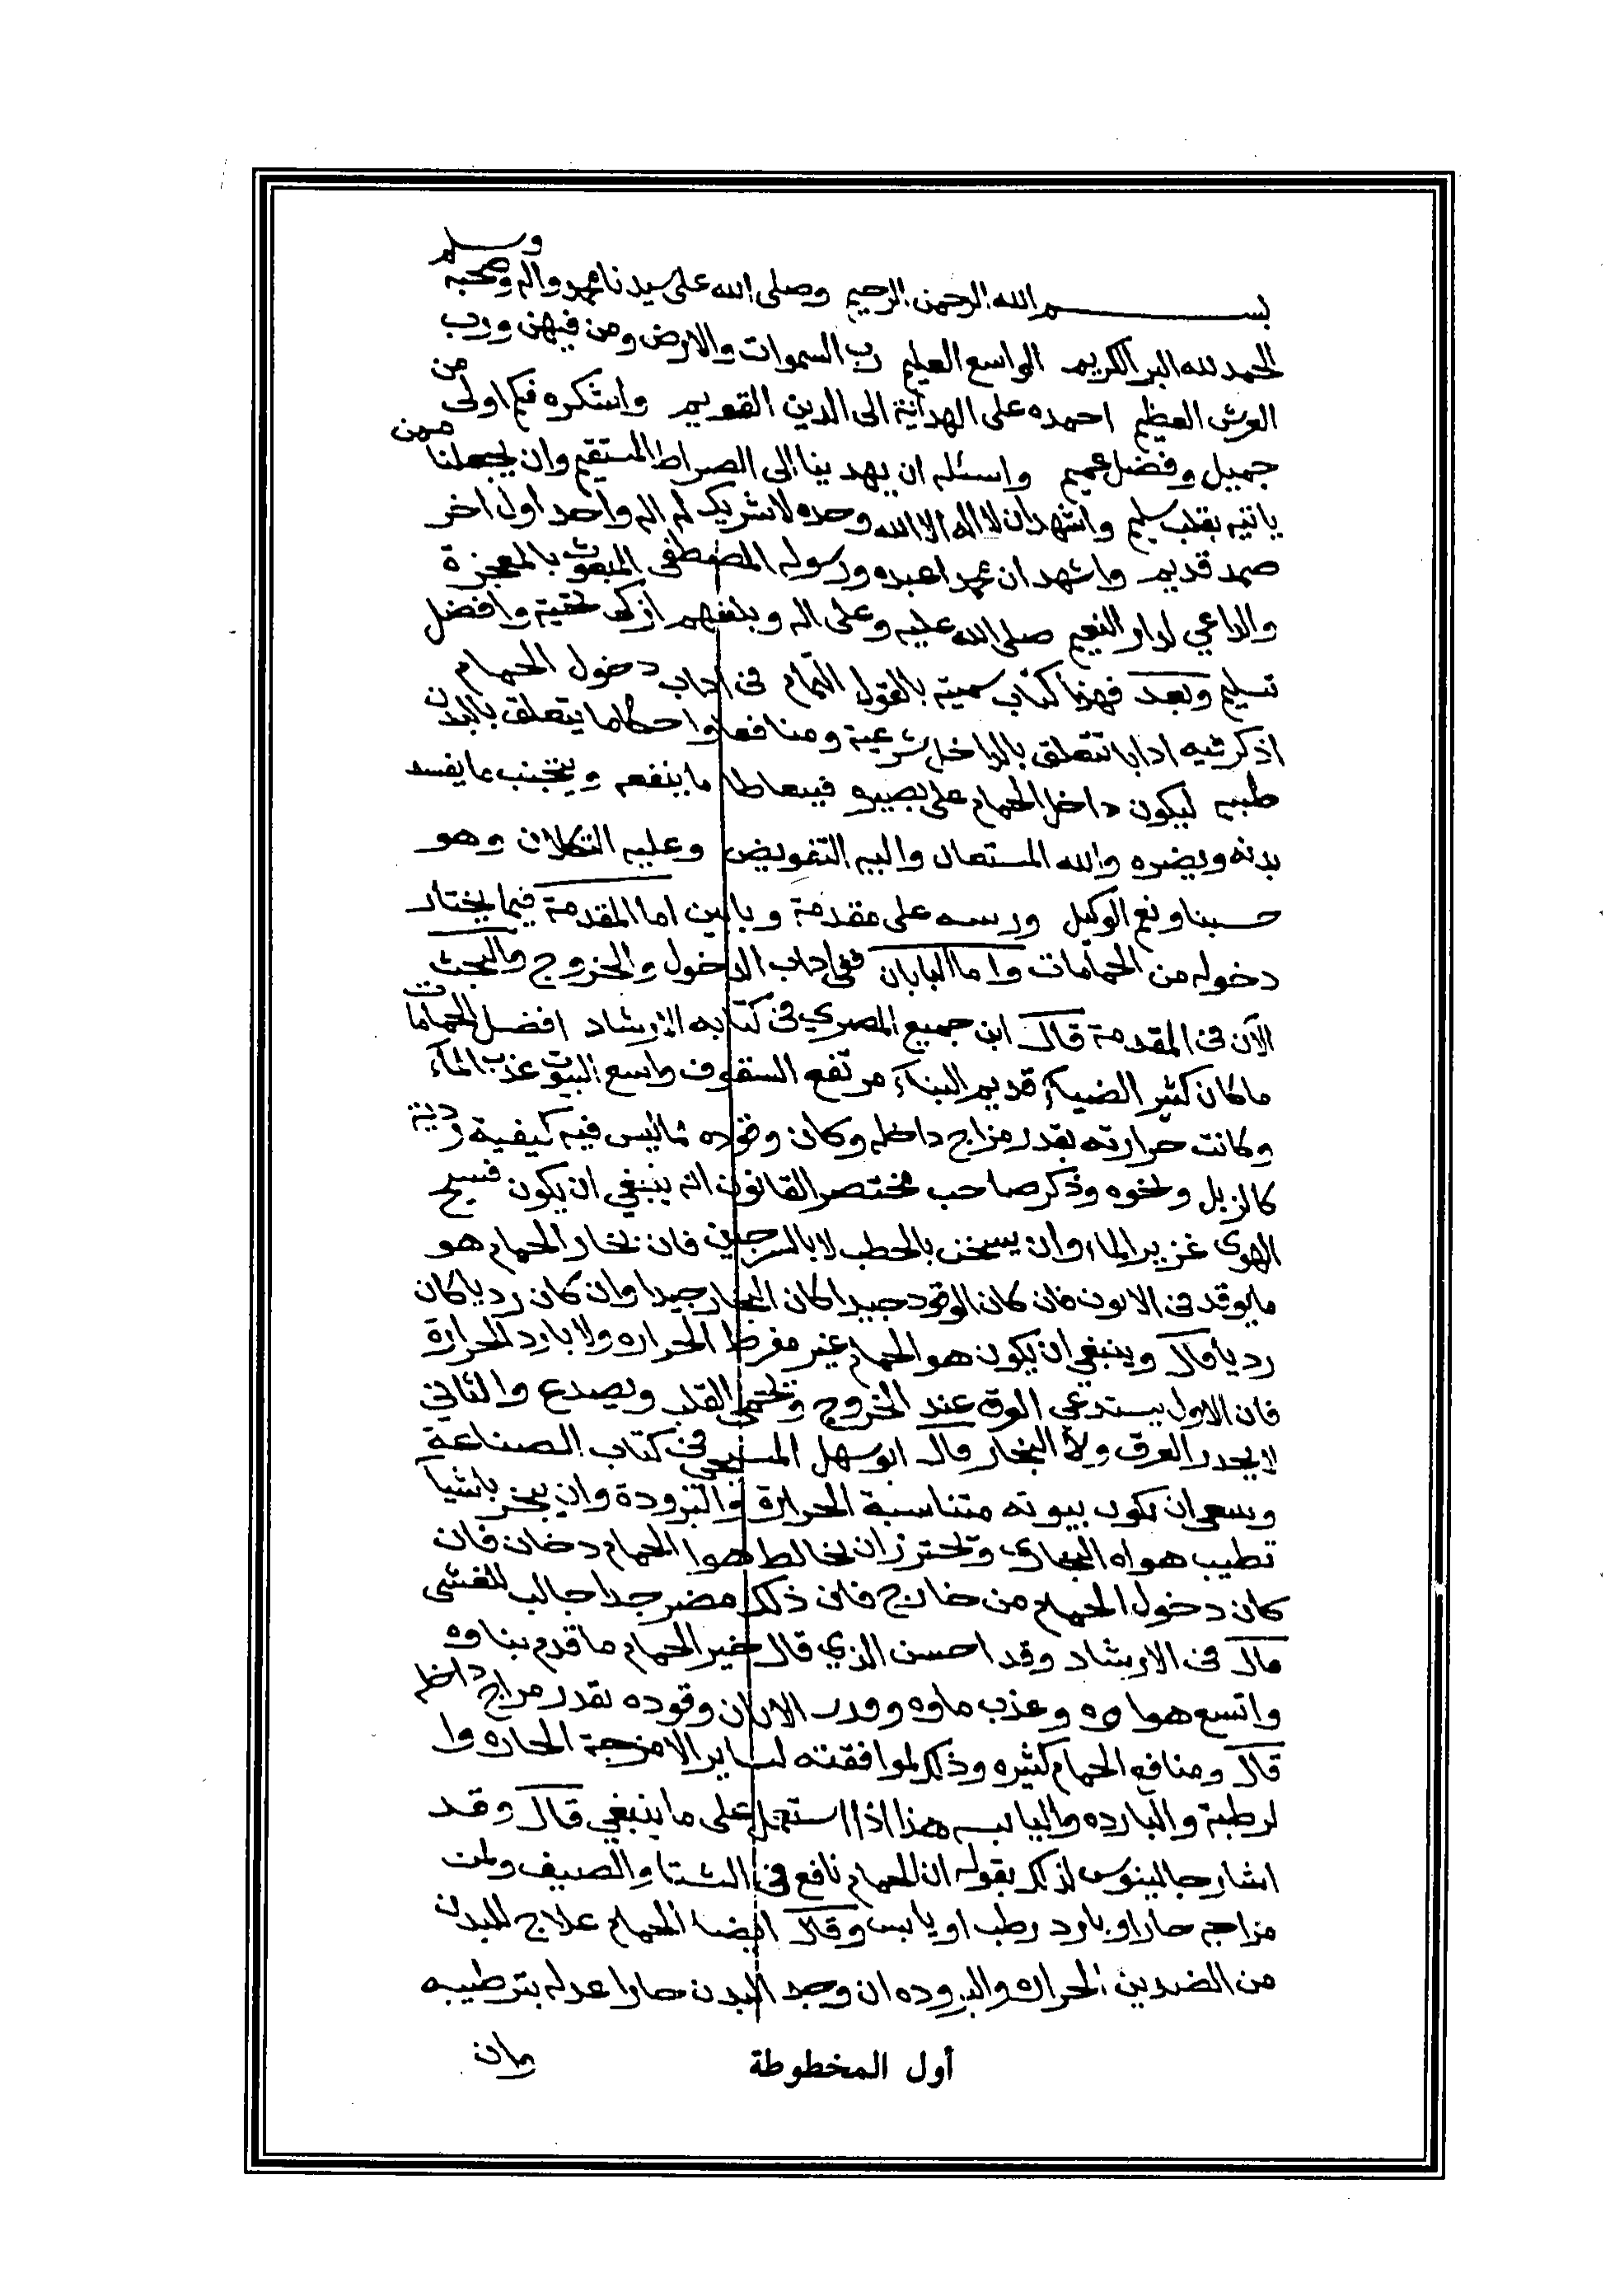 بسم الله الرحمن الرحيم وصلى الله على سيدنا محمد واله وصحبه وسلم
الحمد لله البر الكريم الواسع العليم رب السموات والارض ومن فيهن ورب
العرش العظيم احمده على الهداية الى الدين القويم واشكره فكم اولى من
جميل وفضل عميم واسئله ان يهدينا الى الصراط المستقيم وان يجعلنا ممن
ياتيه بقلب سليم واشهد ان لا اله الا الله وحده لا شريك له اله واحد اول اخر
صمد قديم واشهد ان محمدا عبده ورسوله المصطفى المبعوث بالمعجزة
والداعي لدار النعيم صلى الله عليه وعلى اله ويبلغهم ازكى تحية وافضل
تسليم وبعد فهذا كتاب سميته بالقول التمام فى اداب دخول الحمام
اذكر فيه ادابا تتعلق بالداخل شرعية ومنافعا واحكاما يتعلق بالبدن
طبيه ليكون داخل الحمام على بصيره فيتعاطا ما ينفعه ويتجنب ما يفسد
بدنه ويضره والله المستعان واليه التفويض وعليه التكلان وهو
حسبنا ونعم الوكيل ورتبته على مقدمة وبابين اما المقدمة فيما يختار
دخوله من الحمامات واما البابان ففى اداب الدخول والخروج والبحث
الآن فى المقدمة قال ابن جميع المصري فى كتابه الارشاد افضل الحمامات
ما كان كثير الضياء قديم البناء مرتفع السقوف واسع البيوت عذب الماء
وكانت حرارته بقدر مزاج داخله وكان وقوده مما ليس فيه كيفية ردية
كالزبل ونحوه وذكر صاحب مختصر القانون انه ينبغي ان يكون فسيح
الهوى غزير الماء وان يسخن بالحطب لا بالسرجين فان بخار الحمام هو
ما يوقد فى الاتون فان كان الوقود جيدا كان البخار جيدا وان كان رديا كان
رديا قال وينبغي ان يكون هو الحمام غير مفرط الحراره ولا بارد الحرارة
فان الاول يستدعي العرق عند الخروج القلب ويصدع والثاني
لا يحدر العرق ولا البخار قال ابو سهل المسيحي فى كتاب الصناعة
وينبغي ان يكون بيوته متناسبة الحرارة والبرودة وان يبخر باشيا
تطيب هواه البخاري وتحترز ان يخالط هوا الحمام دخان فان
كان دخول الحمام من خارج فان ذلك مضر جدا جالب للغشى
قال فى الارشاد وقد احسن الذي قال خير الحمام ما قدم بناوه
واتسع هواوه وعذب ماوه وقدر الاتان وقوده بقدر مزاج داخله
قال ومنافع الحمام كثيره وذكر لموافقته لساير الامزجة الحاره وا
لرطبة والبارده واليابسه هذا اذا استعمل على ما ينبغي قال وقد
اشار جالينوس لذكر بقوله ان الحمام نافع فى الشتا والصيف ولمن
مزاجه حار او بارد رطب او يابس وقال ايضا الحمام علاج للبدن
من الضدين الحراره والبروده ان وجد البدن حارا عدله بترطيبه
وان
أول المخطوطة